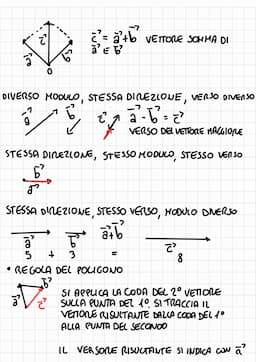 c⃗ = a⃗+b⃗ VETTORE SOMMA DI
a⃗ E b⃗
c⃗
a⃗ b⃗
O
DIVERSO MODULO, STESSA DIREZIONE, VERSO DIVERSO
a⃗ b⃗ c⃗ a⃗ - b⃗ = c⃗
VERSO DEL VETTORE MAGGIORE
STESSA DIREZIONE, STESSO MODULO, STESSO VERSO
b⃗
a⃗
STESSA DIREZIONE, STESSO VERSO, MODULO DIVERSO
a⃗ b⃗ a⃗+b⃗ c⃗
5 + 3 = 8
• REGOLA DEL POLIGONO
a⃗ b⃗ c⃗
SI APPLICA LA CODA DEL 2° VETTORE
SULLA PUNTA DEL 1°. SI TRACCIA IL
VETTORE RISULTANTE DALLA CODA DEL 1°
ALLA PUNTA DEL SECONDO
IL VERSORE RISULTANTE SI INDICA CON a⃗